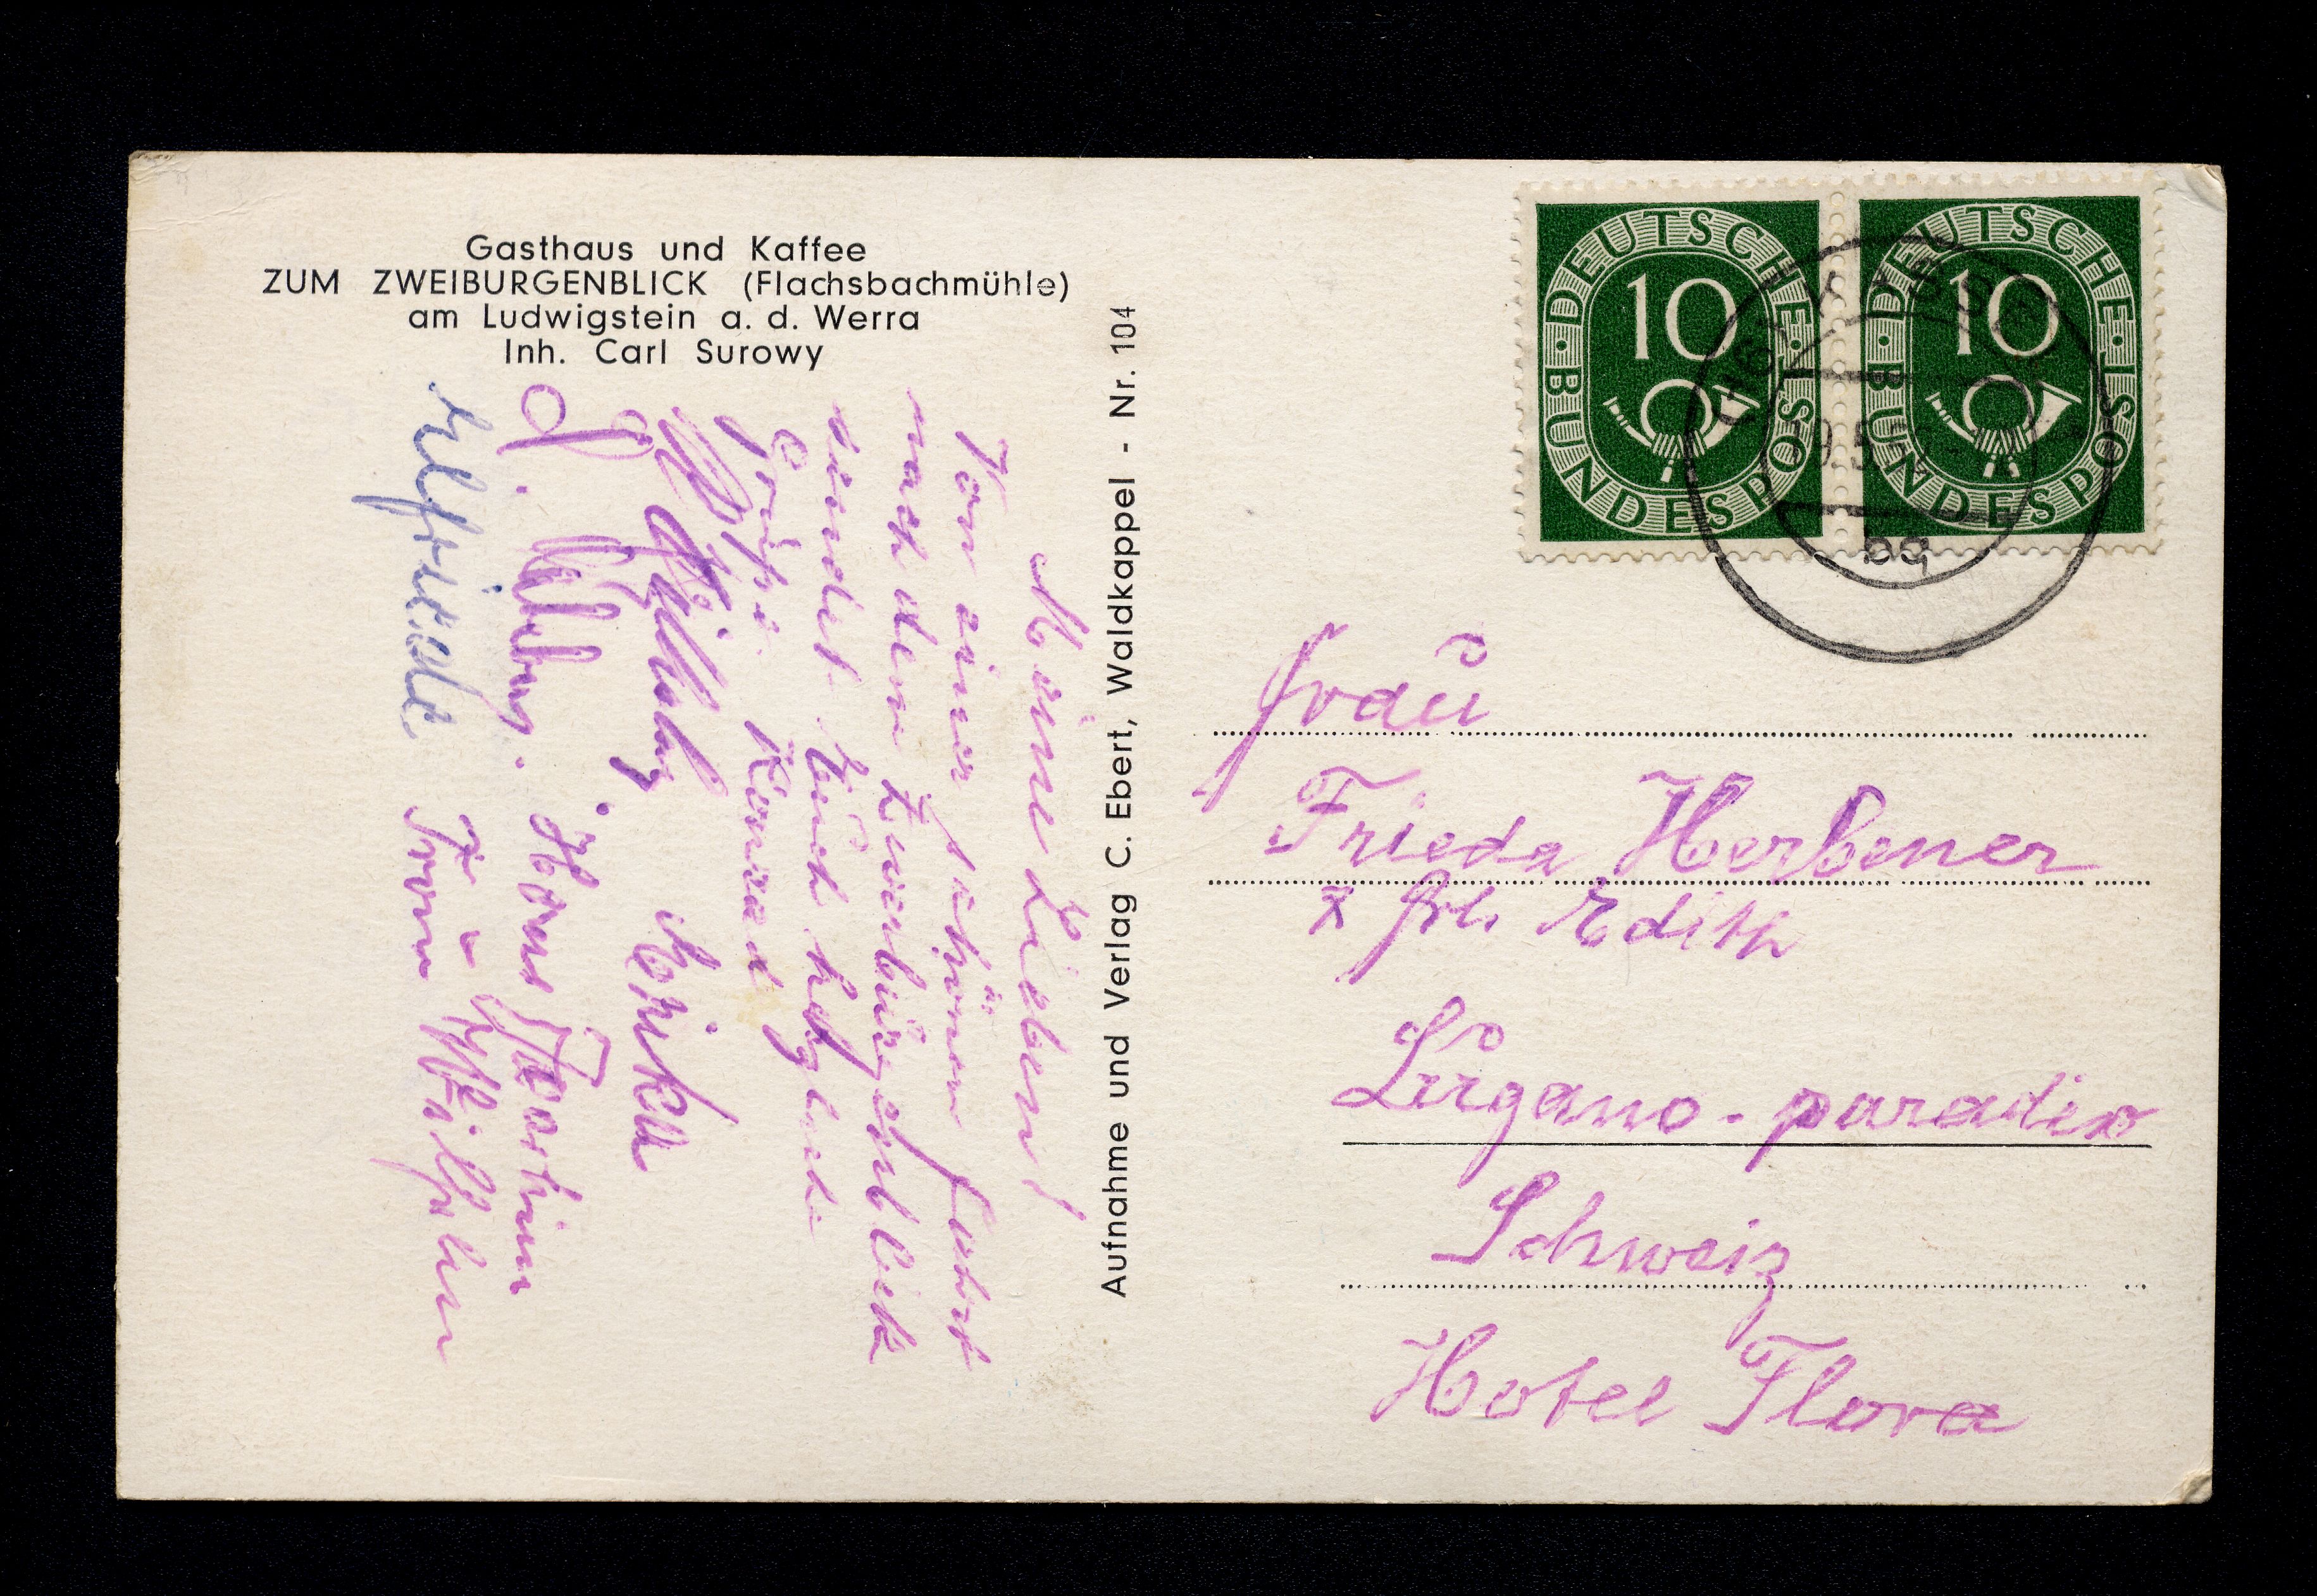 Gasthaus und Kaffee
ZUM ZWEIBURGENBLICK (Flachsbachmühle)
am Ludwigstein a. d. Werra
Inh. Carl Surowy
Meine Lieben!
Von einer schönen Fahrt
nach dem Zweiburgenblick
sendet Euch herzliche
Grüße Konrad
Erika
Hans Joachim
Elfriede
Aufnahme und Verlag C. Ebert, Waldkappel - Nr. 104
DEUTSCHE BUNDESPOST 10
DEUTSCHE BUNDESPOST 10
Frau
Frieda Herbener
Frl. Edith
Lugano-paradiso
Schweiz
Hotel Flora